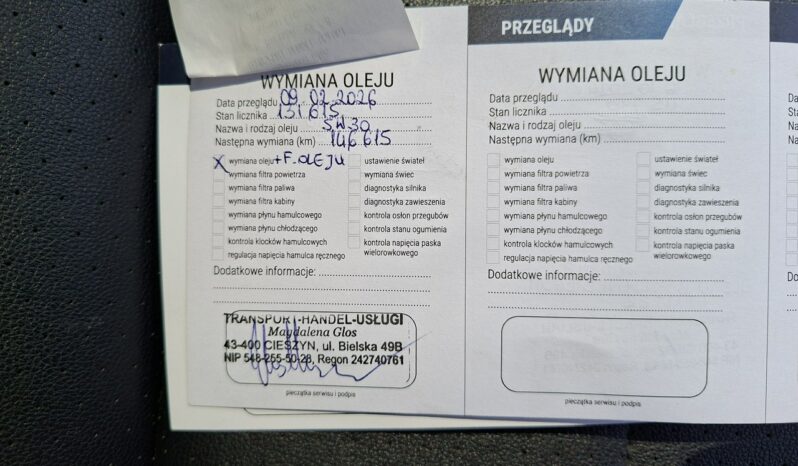 PRZEGLĄDY
WYMIANA OLEJU
Data przeglądu 09.02.2026
Stan licznika 131615
Nazwa i rodzaj oleju 5W30
Następna wymiana (km) 146615
X wymiana oleju + F. OLEJU
wymiana filtra powietrza
wymiana filtra paliwa
wymiana filtra kabiny
wymiana płynu hamulcowego
wymiana płynu chłodzącego
kontrola klocków hamulcowych
regulacja napięcia hamulca ręcznego
ustawienie świateł
wymiana świec
diagnostyka silnika
diagnostyka zawieszenia
kontrola osłon przegubów
kontrola stanu ogumienia
kontrola napięcia paska
wielorowkowego
Dodatkowe informacje:
TRANSPORT-HANDEL-USŁUGI
Magdalena Glos
43-400 CIESZYN, ul. Bielska 49B
NIP 548-255-50-28, Regon 242740761
pieczątka serwisu i podpis
WYMIANA OLEJU
Data przeglądu
Stan licznika
Nazwa i rodzaj oleju
Następna wymiana (km)
wymiana oleju
wymiana filtra powietrza
wymiana filtra paliwa
wymiana filtra kabiny
wymiana płynu hamulcowego
wymiana płynu chłodzącego
kontrola klocków hamulcowych
regulacja napięcia hamulca ręcznego
ustawienie świateł
wymiana świec
diagnostyka silnika
diagnostyka zawieszenia
kontrola osłon przegubów
kontrola stanu ogumienia
kontrola napięcia paska
wielorowkowego
Dodatkowe informacje:
pieczątka serwisu i podpis